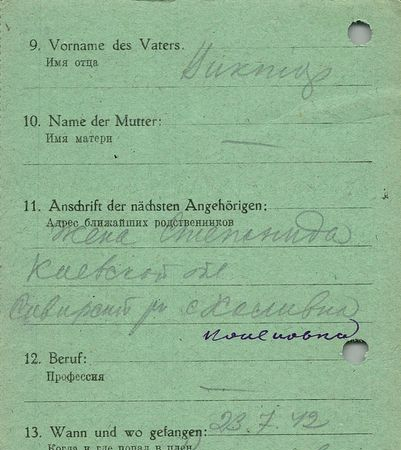 9. Vorname des Vaters.
Имя отца
Виктор
10. Name der Mutter:
Имя матери
—
11. Anschrift der nächsten Angehörigen:
Адрес ближайших родственников
Жена Степанида
Киевской обл
с
12. Beruf:
Профессия
—
23.7.42
13. Wann und wo gefangen:
Когда и где попал в плен